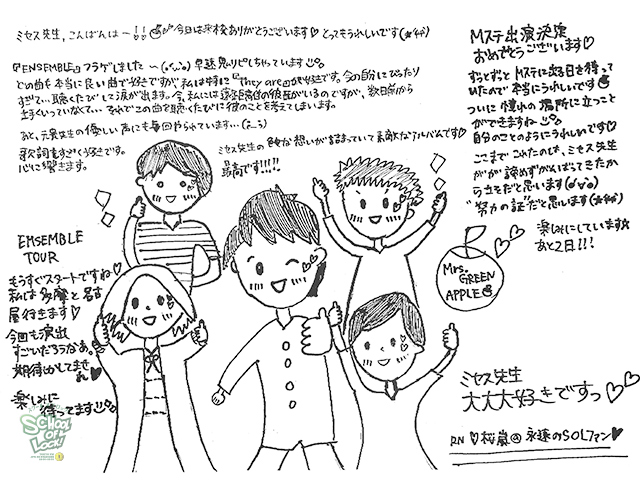 ミセス先生、こんばんはー!! 今日は来校ありがとうございます♡とってもうれしいです
『ENSEMBLE』フラゲしました〜 早速鬼リピしちゃっています
どの曲も本当に良い曲で好きですが、私は特に『They are』が好きです。今の自分にぴったり
すぎて…聴くたびにして涙が出ます。今、私には遠距離の彼氏がいるのですが、数日前から
上手くいっていなくて…それでこの曲を聴くたびに彼のことを考えてしまいます。
あと、元貴先生の優しい声にも毎回やられています…
歌詞もすごく好きです。
心に響きます。
ミセス先生の色々な想いが詰まっていて素敵なアルバムです♡
最高です!!!!
Mステ出演決定
おめでとうございます♡
ずっとずっとMステに出る日を待って
いたので本当にうれしいです
ついに憧れの場所に立つこと
ができますね
自分のことのようにうれしいです♡
ここまでこれたのは、ミセス先生
がが諦めずがんばってきたか
らだと思います
"努力の証"だと思います
楽しみにしています
あと2日!!!
EMSEMBLE
TOUR
もうすぐスタートですね
私は多摩と名古
屋行きます♡
今回も演出
すごいだろうなあ。
期待しかしてませ
ん♥
楽しみに
待ってます
Mrs.
GREEN
APPLE
ミセス先生
大大大好きですっ♡♡
RN ♡桜嵐@永遠のSOLファン♡
SCHOOL
OF
LOCK!